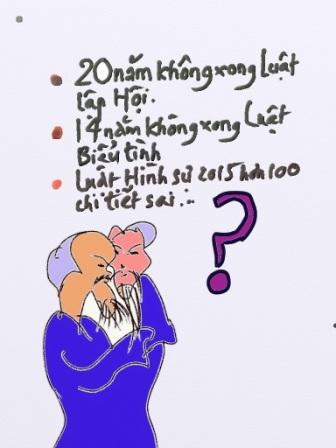 • 20 năm không xong Luật
lập Hội.
• 14 năm không xong Luật
Biểu tình
• Luật Hình sự 2015 hơn 100
chi tiết sai...
?